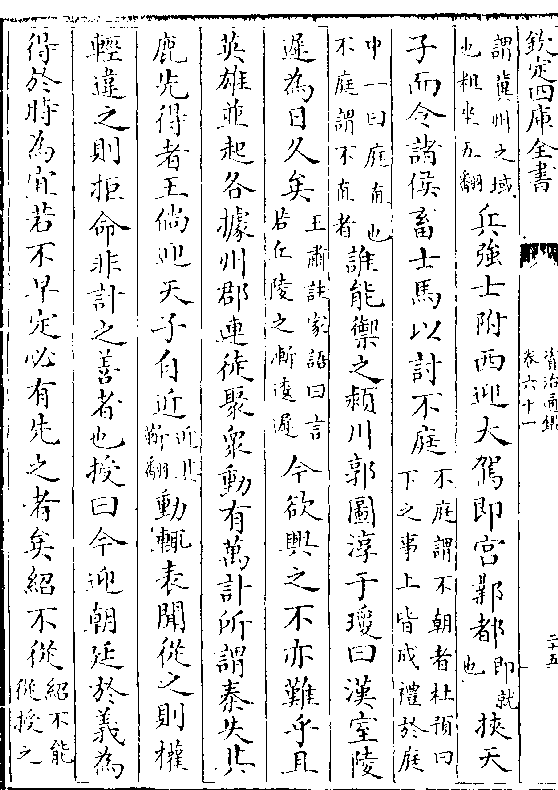 欽定四庫全書 資治通鑑 卷六十一 二十五
謂冀州之域也粗坐五翻兵強士附西迎大駕即宮鄴都即就也挾天
子而令諸侯畜士馬以討不庭不庭謂不朝者杜預曰下之事上皆成禮於庭
中一曰庭直也不庭謂不直者誰能禦之潁川郭圖淳于瓊曰漢室陵
遲為日久矣王肅註家語曰言若丘陵之漸逶遲今欲興之不亦難乎且
英雄並起各據州郡連徒聚衆動有萬計所謂秦失其
鹿先得者王倘迎天子自近近其靳翻動輒表聞從之則權
輕違之則拒命非計之善者也授曰今迎朝廷於義為
得於時為宜若不早定必有先之者矣紹不從紹不能從授之